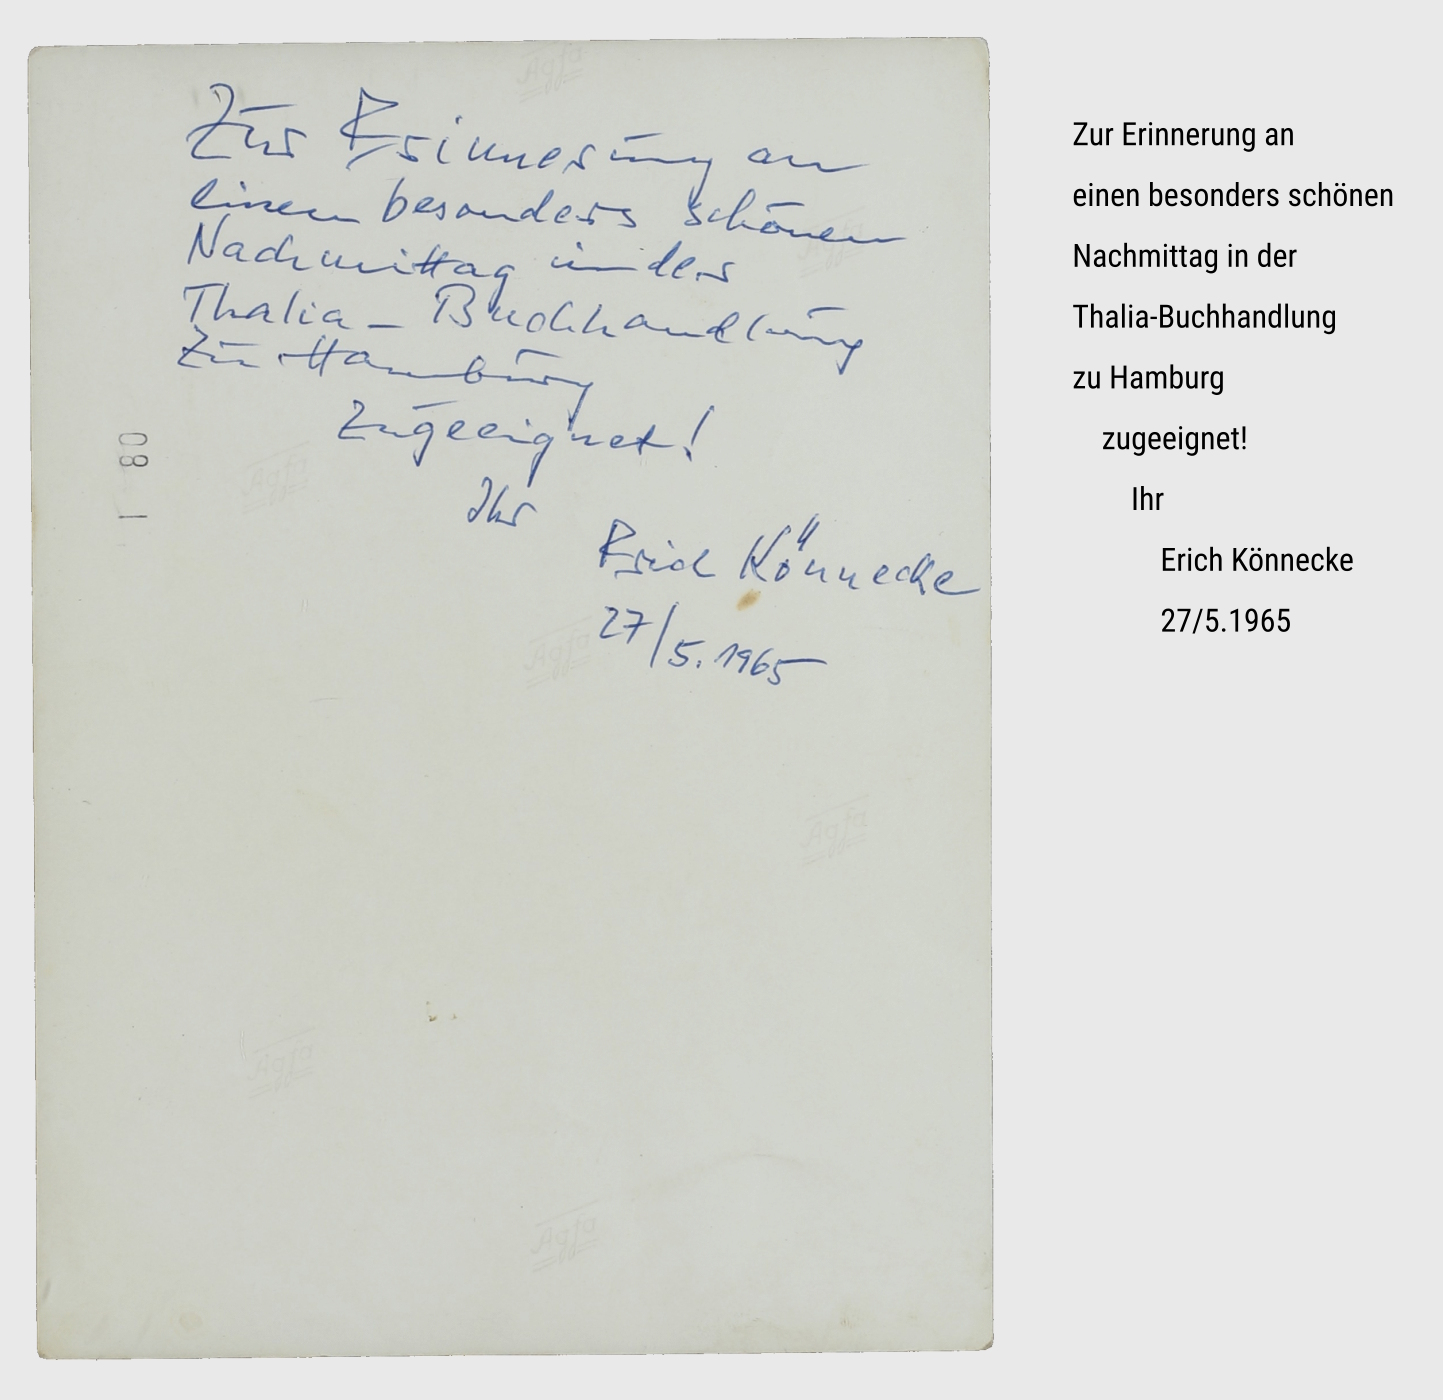 Zur Erinnerung an
einen besonders schönen
Nachmittag in der
Thalia - Buchhandlung
zu Hamburg
zugeeignet!
Ihr
Erich Könnecke
27/5.1965
1 80
Agfa
Agfa
Agfa
Agfa
Agfa
Agfa
Agfa
Zur Erinnerung an
einen besonders schönen
Nachmittag in der
Thalia-Buchhandlung
zu Hamburg
zugeeignet!
Ihr
Erich Könnecke
27/5.1965